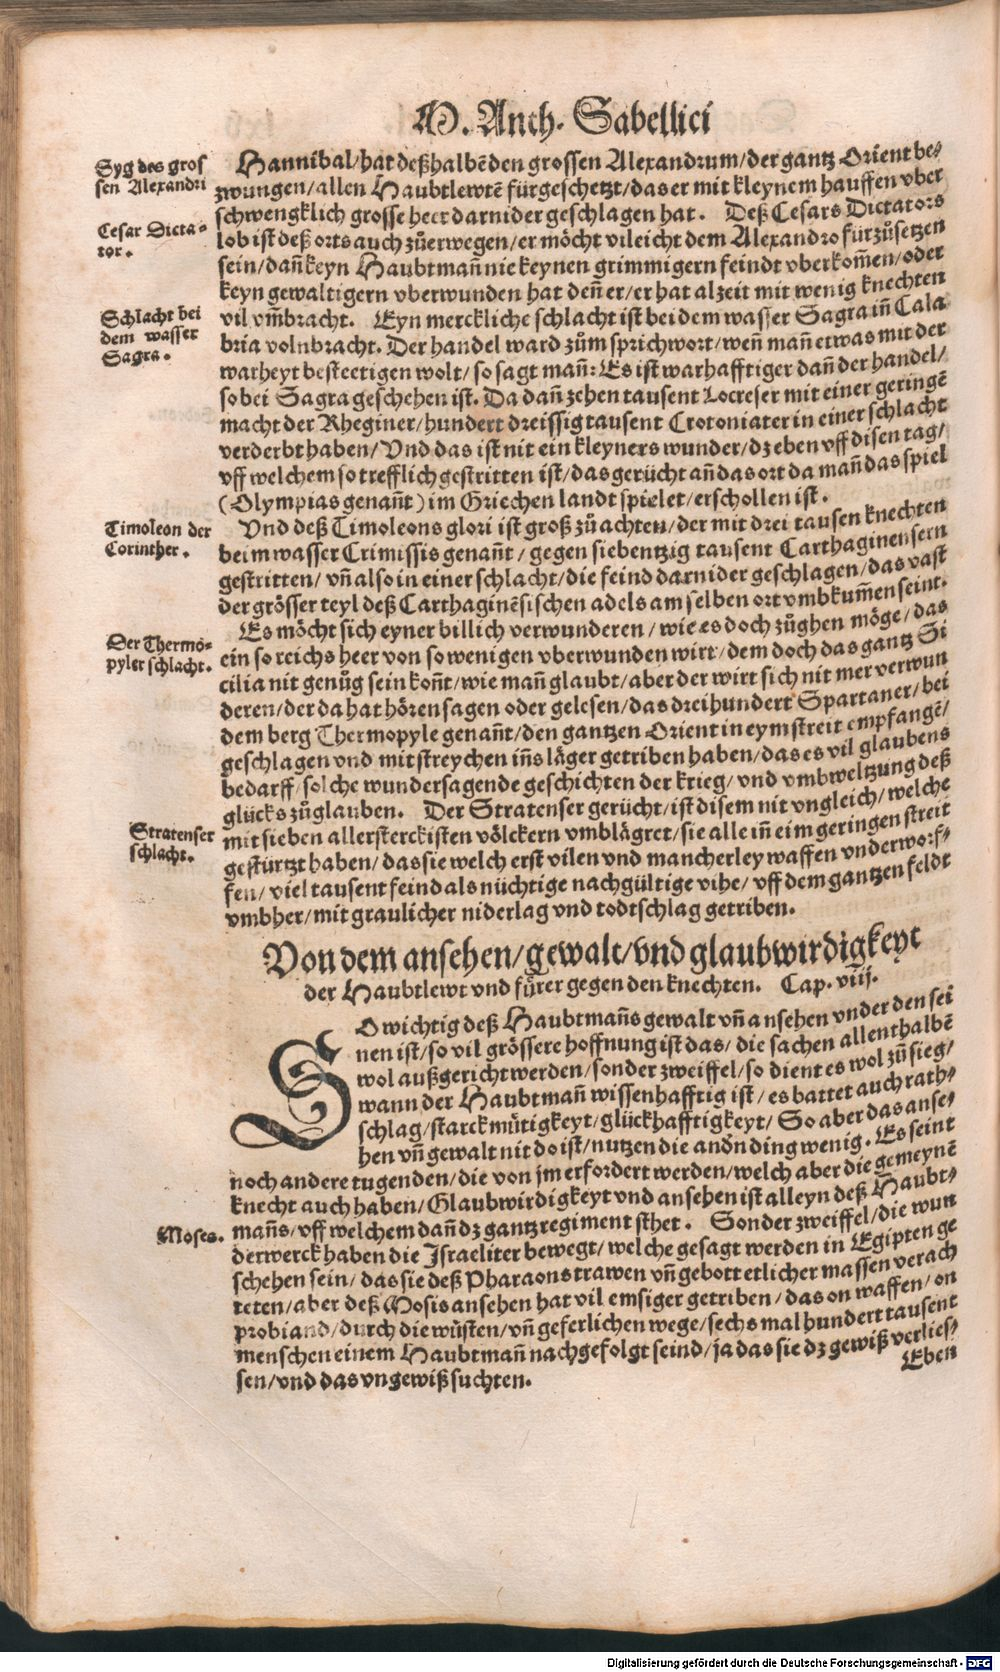 M. Anth. Sabellici
Syg des gros
sen Alexandri
Hannibal/hat deßhalbē den grossen Alexandrum/der gantz Orient be⸗
zwungen/allen Haubtlewtē fürgesetzt/das er mit kleynem hauffen vber
schwengklich grosse heer darnider geschlagen hat. Deß Cesars Dictators
Cesar Dicta⸗
tor.
lob ist deß orts auch zůerwegen/er möcht vileicht dem Alexandro fürzůsetzen
sein/dañ keyn Haubtmañ nie keynen grimmigern feindt vberkom̄en/oder
keyn gewaltigern vberwunden hat deñ er/er hat alzeit mit wenig knechten
Schlacht bei
dem wasser
Sagra.
vil vm̄bracht. Eyn merckliche schlacht ist bei dem wasser Sagra iñ Cala
bria volnbracht. Der handel ward zům sprichwort/weñ mañ etwas mit der
warheyt besteetigen wolt/so sagt mañ: Es ist warhafftiger dañ der handel/
so bei Sagra geschehen ist. Da dañ zehen tausent Locreser mit einer geringē
macht der Rheginer/hundert dreissig tausent Crotoniater in einer schlacht
verderbt haben/Vnd das ist nit ein kleyners wunder/dz eben vff disen tag/
vff welchem so trefflich gestritten ist/das gerücht añ das ort da mañ das spiel
(Olympias genañt) im Griechen landt spielet/erschollen ist.
Timoleon der
Corinther.
Vnd deß Timoleons glori ist groß zů achten/der mit drei tausen knechten
beim wasser Crimissis genañt/gegen siebentzig tausent Carthaginensern
gestritten/vñ also in einer schlacht/die feind darnider geschlagen/das vast
der grösser teyl deß Carthaginēsischen adels am selben ort vmbkum̄en seint.
Der Thermo⸗
pyler schlacht.
Es möcht sich eyner billich verwunderen/wie es doch zůghen möge/das
ein so reichs heer von so wenigen vberwunden wirt/dem doch das gantz Si
cilia nit genůg sein koñt/wie mañ glaubt/aber der wirt sich nit mer verwun
deren/der da hat hören sagen oder gelesen/das dreihundert Spartaner/bei
dem berg Thermopyle genañt/den gantzen Orient in eym streit empfangē/
geschlagen vnd mit streychen iñs läger getriben haben/das es vil glaubens
bedarff/solche wundersagende geschichten der krieg/vnd vmbweltzung deß
glücks zůglauben. Der Stratenser gerücht/ist disem nit vngleich/welche
Stratenser
schlacht.
mit sieben allersterckisten völckern vmblägret/sie alle iñ eim geringen streit
gestürtzt haben/das sie welch erst vilen vnd mancherley waffen vnderworf⸗
fen/viel tausent feind als nüchtige nachgültige vihe/vff dem gantzen feldt
vmbher/mit graulicher niderlag vnd todtschlag getriben.
Von dem ansehen/gewalt/vnd glaubwirdigkeyt
der Haubtlewt vnd fürer gegen den knechten. Cap. viij.
SO wichtig deß Haubtmañs gewalt vñ ansehen vnder den sei
nen ist/so vil grössere hoffnung ist das/die sachen allenthalbē
wol außgericht werden/sonder zweiffel/so dient es wol zů sieg/
wann der Haubtmañ wissenhafftig ist/es battet auch rath⸗
schlag/starckmütigkeyt/glückhafftigkeyt/So aber das anse⸗
hen vñ gewalt nit do ist/nutzen die andn̄ ding wenig. Es seint
noch andere tugenden/die von jm erfordert werden/welch aber die gemeynē
knecht auch haben/Glaubwirdigkeyt vnd ansehen ist alleyn deß Haubt⸗
Moses.
mañs/vff welchem dañ dz gantz regiment sthet. Sonder zweiffel/die wun
derwerck haben die Israeliter bewegt/welche gesagt werden in Egipten ge
schehen sein/das sie deß Pharaons trawen vñ gebott etlicher massen verach
teten/aber deß Mosis ansehen hat vil emsiger getriben/das on waffen/on
probiand/durch die wüsten/vñ geferlichen wege/sechs mal hundert tausent
menschen einem Haubtmañ nachgefolgt seind/ja das sie dz gewiß verlies⸗
sen/vnd das vngewiß suchten.
Eben
Digitalisierung gefördert durch die Deutsche Forschungsgemeinschaft - DFG